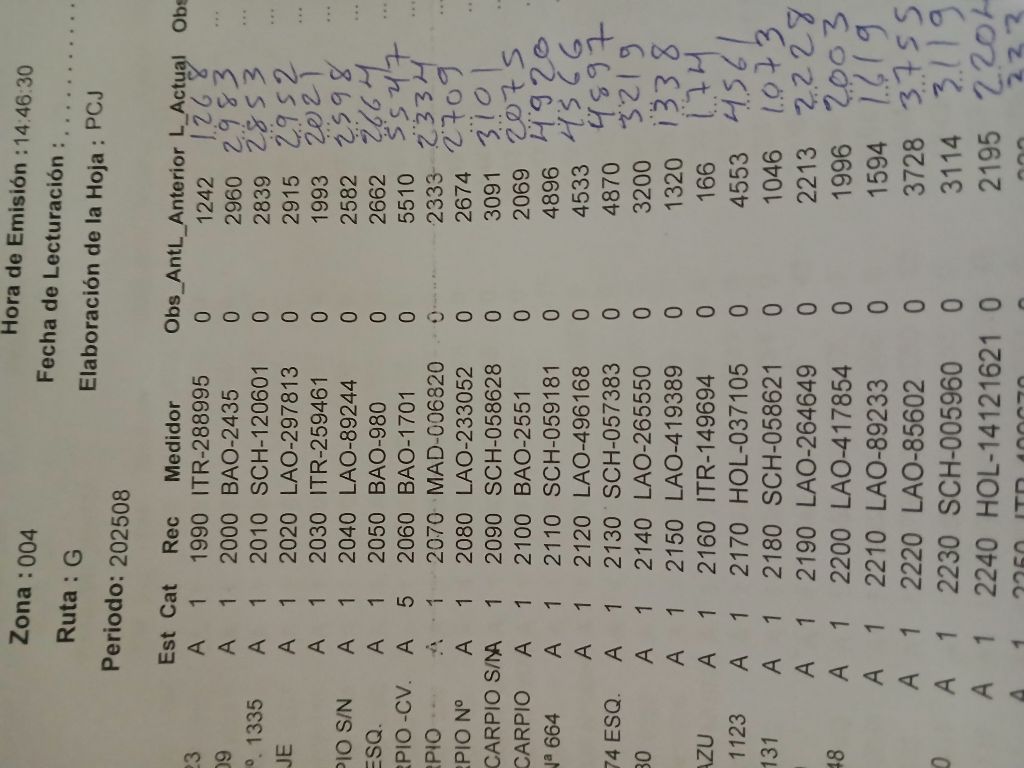 Zona : 004 Hora de Emisión : 14:46:30
Ruta : G Fecha de Lecturación : ..........
Periodo: 202508 Elaboración de la Hoja : PCJ
Est Cat Rec Medidor Obs_AntL_Anterior L_Actual Obs
23 A 1 1990 ITR-288995 0 1242 1268 ...
09 A 1 2000 BAO-2435 0 2960 2983 ...
º. 1335 A 1 2010 SCH-120601 0 2839 2853 ...
JE A 1 2020 LAO-297813 0 2915 2952 ...
A 1 2030 ITR-259461 0 1993 2021 ...
PIO S/N A 1 2040 LAO-89244 0 2582 2598 ...
ESQ. A 1 2050 BAO-980 0 2662 2664 ...
RPIO -CV. A 5 2060 BAO-1701 0 5510 5547 ...
RPIO A 1 2070 MAD-006820 0 2333 2334 ...
RPIO Nº A 1 2080 LAO-233052 0 2674 2709
CARPIO S/N A 1 2090 SCH-058628 0 3091 3101
CARPIO A 1 2100 BAO-2551 0 2069 2075
Nª 664 A 1 2110 SCH-059181 0 4896 4920
A 1 2120 LAO-496168 0 4533 4566
74 ESQ. A 1 2130 SCH-057383 0 4870 4897
30 A 1 2140 LAO-265550 0 3200 3219
A 1 2150 LAO-419389 0 1320 1338
AZU A 1 2160 ITR-149694 0 166 174
1123 A 1 2170 HOL-037105 0 4553 4561
131 A 1 2180 SCH-058621 0 1046 1073
A 1 2190 LAO-264649 0 2213 2228
48 A 1 2200 LAO-417854 0 1996 2003
A 1 2210 LAO-89233 0 1594 1619
A 1 2220 LAO-85602 0 3728 3755
0 A 1 2230 SCH-005960 0 3114 3119
A 1 2240 HOL-14121621 0 2195 2204
A 1 2250 ITR